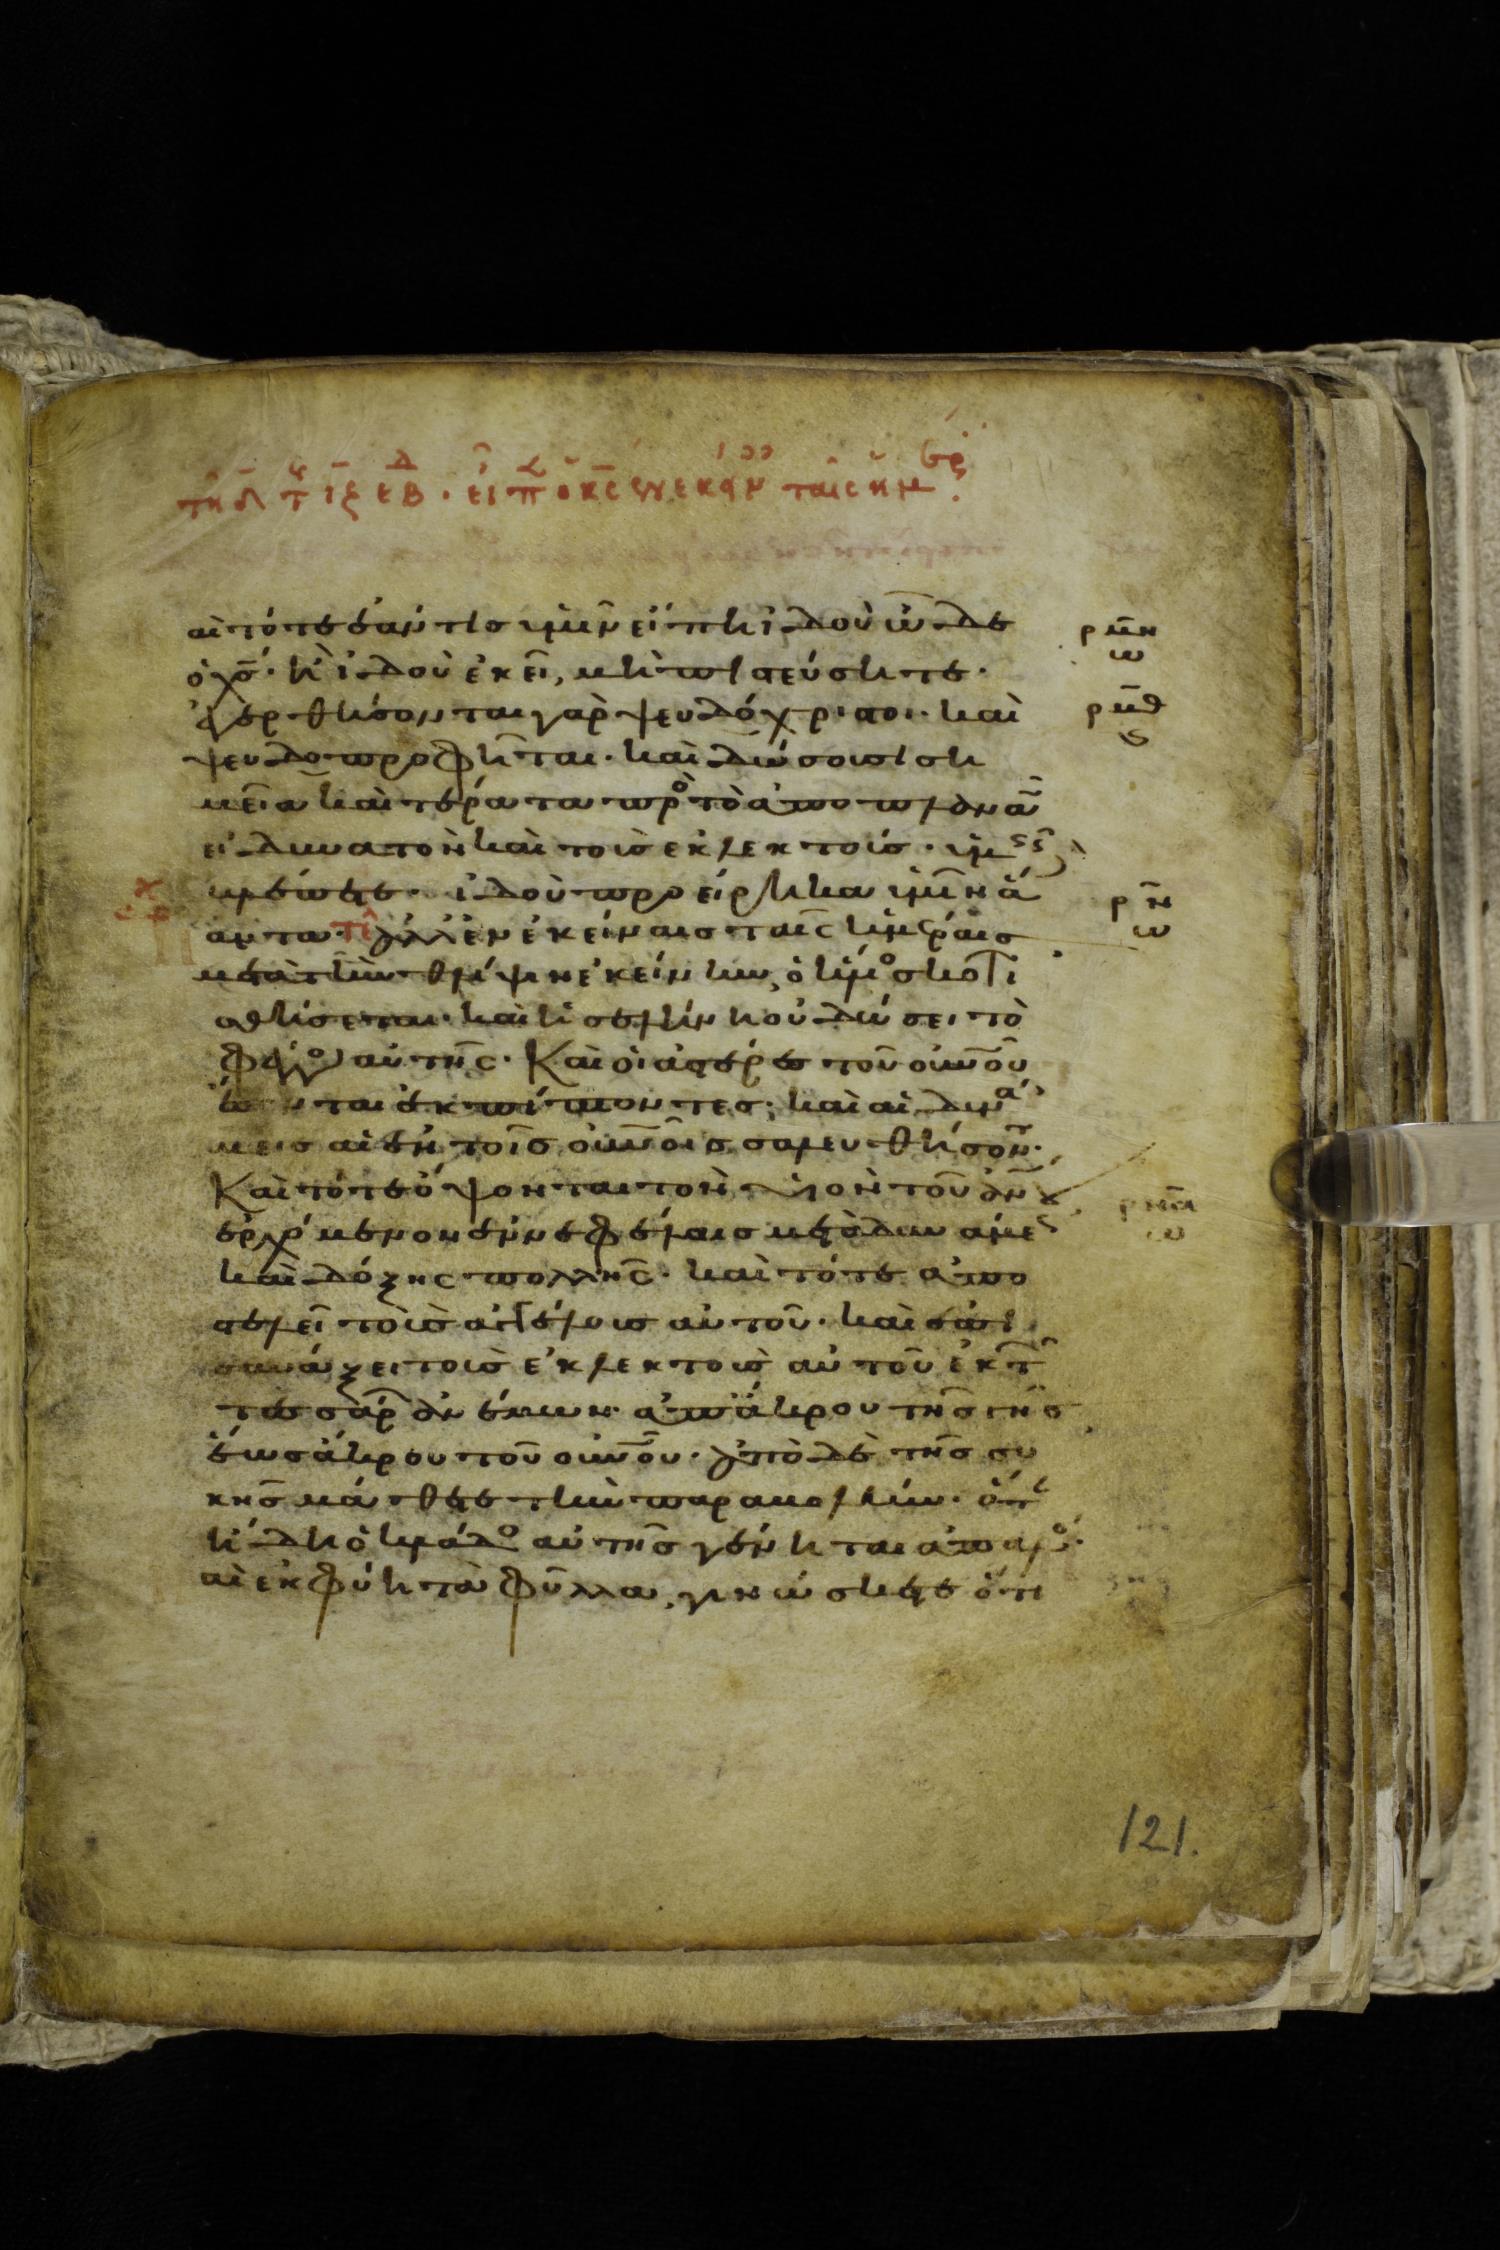 τῆ δ τ ιξ εβ. εἶπ ὁ κς ἐν ἐκείν ταῖς ἡμέρ.
αὶ τότε ἐάν τις ὑμῖν εἴπη ἰδοὺ ὧδε
ὁ χς· κ ἰδοὺ ἐκεῖ, μὴ πιστεύσητε·
ἐγερθήσονται γὰρ ψευδόχριστοι· καὶ
ψευδοπροφῆται· καὶ δώσουσι ση
μεῖα καὶ τέρατα πρὸ τὸ ἀποπλανᾶν
εἰ δυνατὸν καὶ τοὺς ἐκλεκτούς· ὑμεῖς
βλέπετε· ἰδοὺ προείρηκα ὑμῖν ἅ
παντα· ἀλλ ἐν ἐκείναις ταῖς ἡμέραις
μετὰ τὴν θλίψιν ἐκείνην, ὁ ἥλιος σκοτι
σθήσεται· καὶ ἡ σελήνη οὐ δώσει τὸ
φέγγος αὐτῆς· Καὶ οἱ ἀστέρες τοῦ οὐνοῦ
ἔσονται ἐκπίπτοντες· καὶ αἱ δυνά
μεις αἱ ἐν τοῖς οὐνοῖς σαλευθήσον·
Καὶ τότε ὄψονται τὸν υἱὸν τοῦ ἀνου
ἐρχόμενον ἐν νεφέλαις μετὰ δυνάμε
καὶ δόξης πολλῆς· καὶ τότε ἀπο
στελεῖ τοὺς ἀγγέλους αὐτοῦ· καὶ ἐπι
συνάξει τοὺς ἐκλεκτοὺς αὐτοῦ ἐκ τ
τεσσάρ ἀνέμων· ἀπ ἄκρου τῆς γῆς
ἕως ἄκρου τοῦ οὐνοῦ· ἀπὸ δὲ τῆς συ
κῆς μάθετε τὴν παραβολήν· ὅτ
ἤδη ὁ κλάδος αὐτῆς γένηται ἁπαλός·
αὶ ἐκφύη τὰ φύλλα, γινώσκετε ὅτι
ρμη
ω
ρμθ
ς
ρν
ω
ρνα
ω
121.